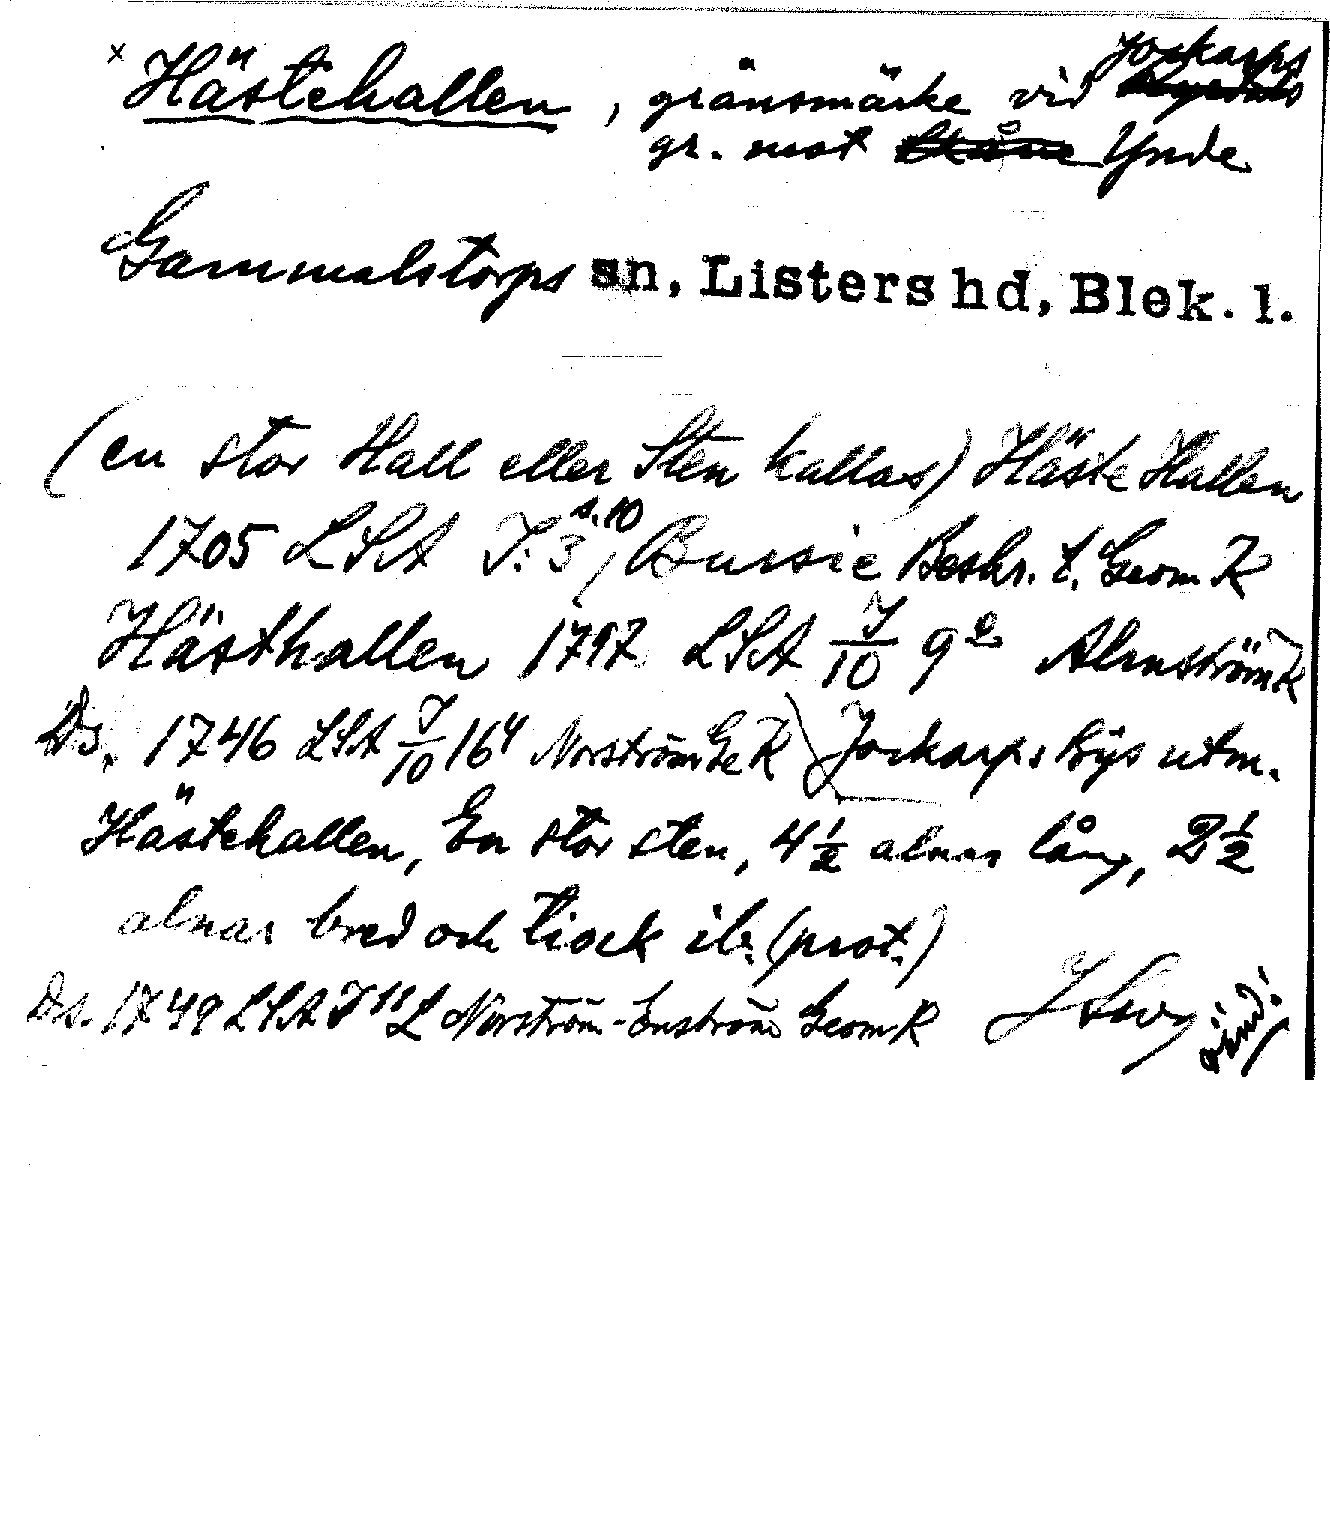 x Hästehallen, gränsmärke vid Jockarps
gr. mot Ynde
Gammalstorps sn, Listers hd, Blek. l.
(en stor Hall eller Sten kallas) Häste Hallen
1705 LSA J:3 s.10, Bursie Beskr. t. Geom K
Hästhallen 1797 LSA J/10 9² Almström K
Ds. 1746 LSA J/10 16⁴ Norström Ge K Jockarps bys utm.
Hästehallen, En stor sten, 4½ alnar lång, 2½
alnar bred och tiock ib. (prot.)
Ds. 1749 LSA J Norström-Enström Geom K